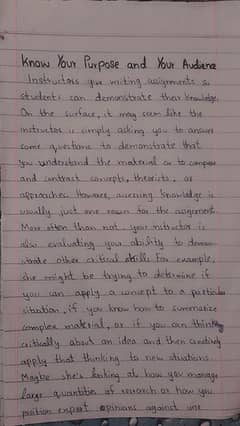 Know Your Purpose and Your Audience
Instructors give writing assignments so
students can demonstrate their knowledge.
On the surface, it may seem like the
instructor is simply asking you to answer
some questions to demonstrate that
you understand the material or to compare
and contrast concepts, theorists, or
approaches. However, assessing knowledge is
usually just one reason for the assignment.
More often than not, your instructor is
also evaluating your ability to demon-
strate other critical skills. For example,
she might be trying to determine if
you can apply a concept to a particular
situation, if you know how to summarize
complex material, or if you can think
critically about an idea and then creatively
apply that thinking to new situations.
Maybe she's looking at how you manage
large quantities of research or how you
position expert opinions against one